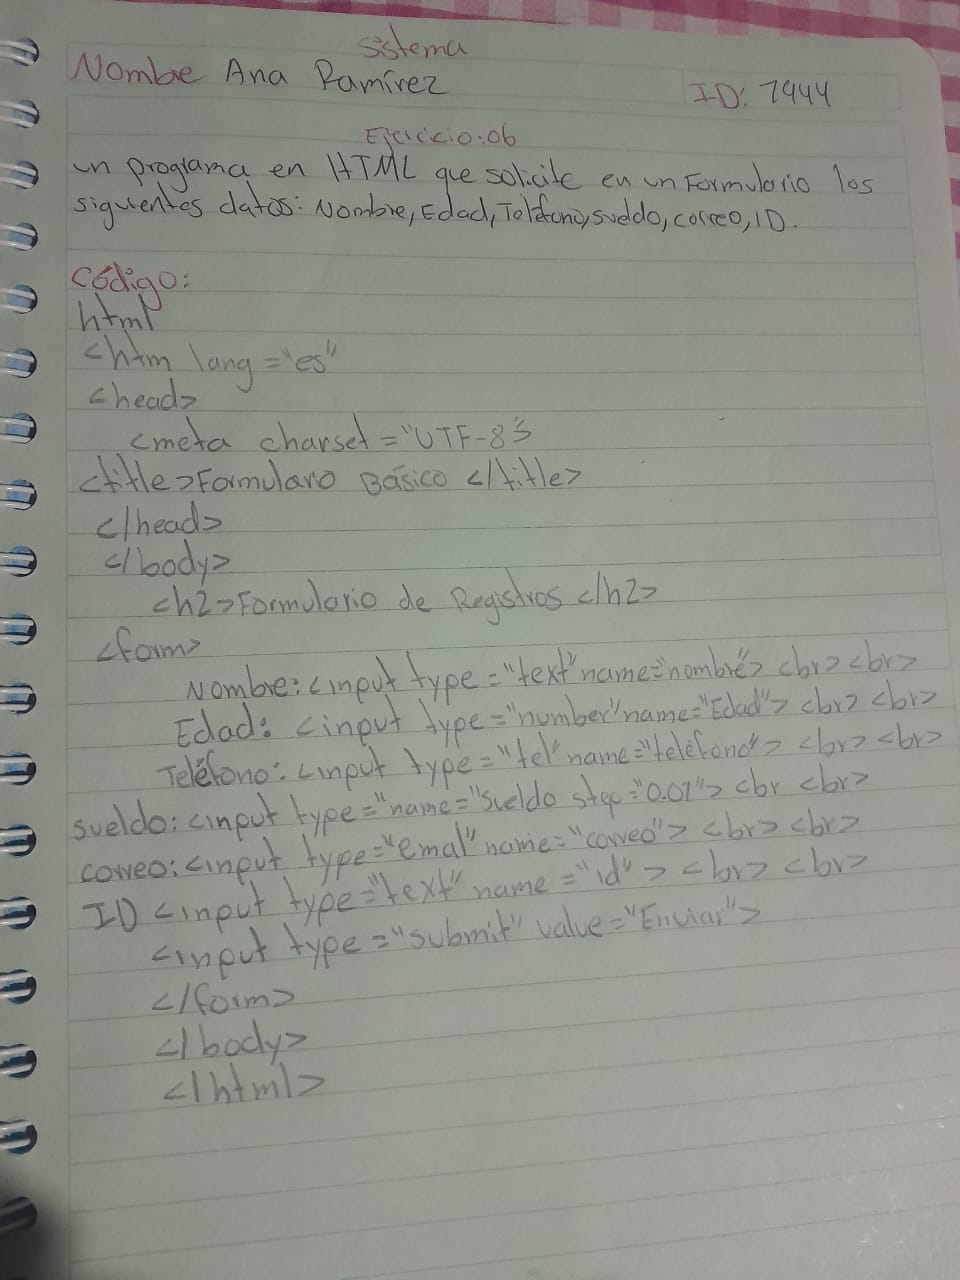 Sistema
Nombre Ana Ramírez ID: 7944
Ejercicio:06
un programa en HTML que solicite en un Formulario los
siguientes datos: Nombre, Edad, Teléfono, sueldo, correo, ID.
Código:
html
<htm lang="es"
<head>
<meta charset="UTF-8">
<title>Formularo Básico </title>
</head>
</body>
<h2>Formulario de Registros </h2>
<form>
Nombre: <input type="text" name="nombre"> <br> <br>
Edad: <input type="number" name="Edad"> <br> <br>
Teléfono: <input type="tel" name="teléfono"> <br> <br>
sueldo: <input type="name="Sueldo step="0.01"> <br <br>
correo: <input type="emal" name="correo"> <br> <br>
ID <input type="text" name="id"> <br> <br>
<input type="submit" value="Enviar">
</form>
</body>
</html>